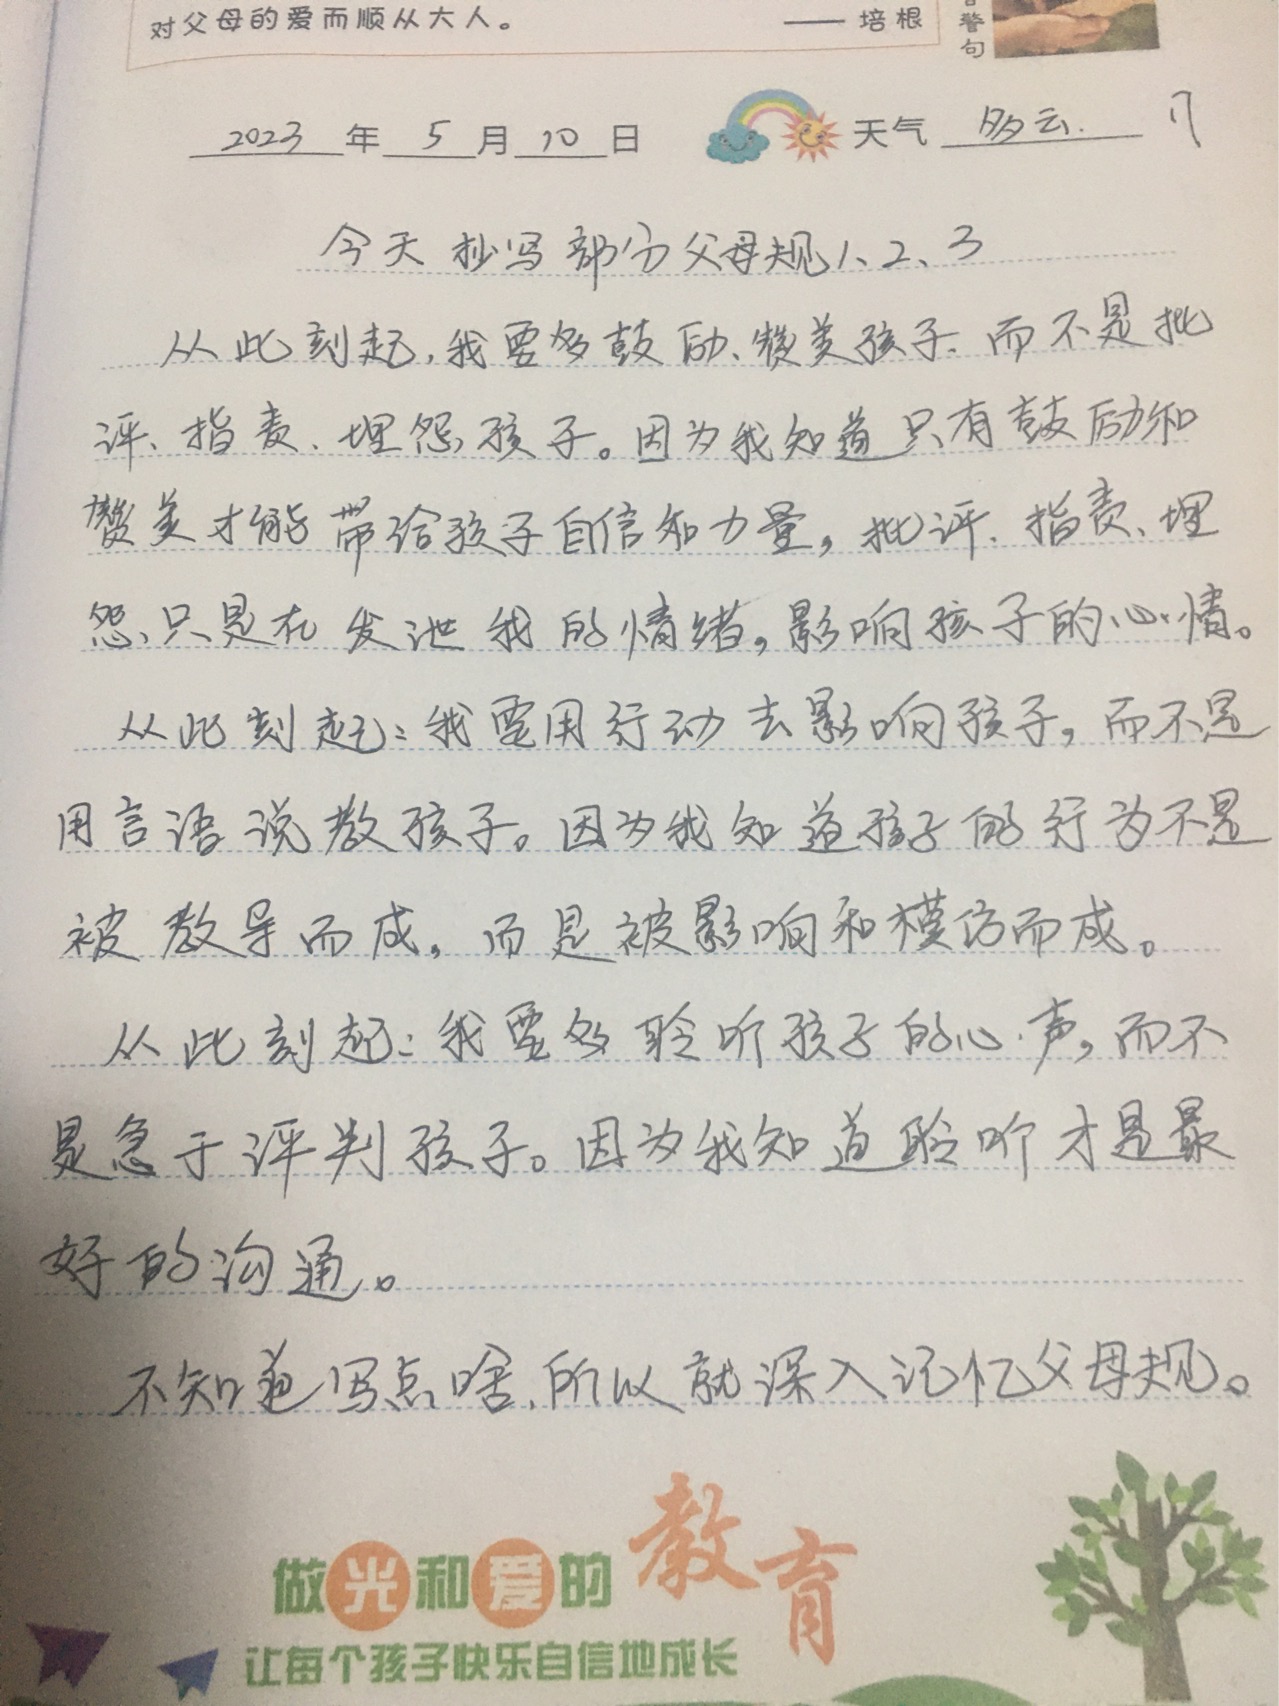 对父母的爱而顺从大人。 —— 培根
警句
2023年5月10日 天气 多云.
今天抄写部分父母规1、2、3
从此刻起,我要多鼓励、赞美孩子、而不是批
评、指责、埋怨孩子。因为我知道只有鼓励和
赞美才能带给孩子自信和力量,批评、指责、埋
怨、只是在发泄我的情绪,影响孩子的心情。
从此刻起:我要用行动去影响孩子,而不是
用言语说教孩子。因为我知道孩子的行为不是
被教导而成,而是被影响和模仿而成。
从此刻起:我要多聆听孩子的心声,而不
是急于评判孩子。因为我知道聆听才是最
好的沟通。
不知道写点啥,所以就深入记忆父母规。
做光和爱的教育
让每个孩子快乐自信地成长